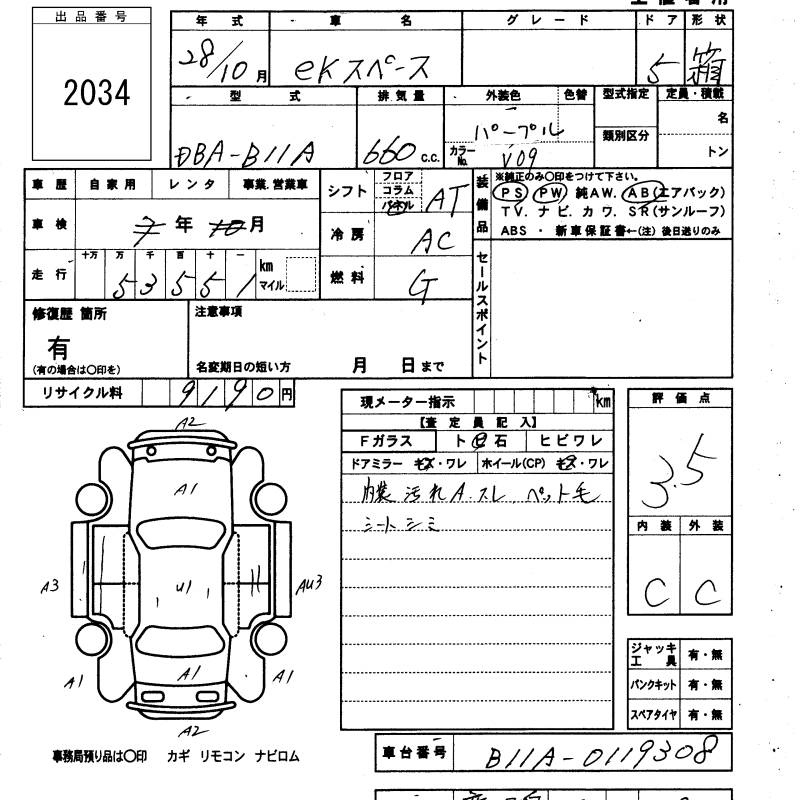 出品番号
2034
年式 車名 グレード ドア 形状
28/10月 eKスペース 5 箱
型式 排気量 外装色 色替 型式指定 定員・積載
類別区分 名
トン
DBA-B11A 660 c.c. パープル
カラーNo. V09
車歴 自家用 レンタ 事業.営業車
車検 7年 10月
走行 十万 万 千 百 十 一
5 3 5 5 1 km マイル
シフト フロア コラム パネル AT
冷房 AC
燃料 G
装備品
※純正のみ○印をつけて下さい。
PS PW 純AW. AB(エアバック)
TV. ナビ. カワ. SR(サンルーフ)
ABS ・ 新車保証書←(注) 後日送りのみ
セールスポイント
修復歴 箇所
有
(有の場合は○印を)
注意事項
名変期日の短い方 月 日まで
リサイクル料 9190円
現メーター指示 km
【査定員記入】
Fガラス ト 石 ヒビワレ
ドアミラー キズ・ワレ ホイール(CP) キズ・ワレ
内装 汚れA.スレ ペット毛
シートシミ
評価点
3.5
内装 外装
C C
A2
A1
A3 U1 AU3
A1 A1 A1
A2
ジャッキ工具 有・無
パンクキット 有・無
スペアタイヤ 有・無
事務局預り品は○印 カギ リモコン ナビロム
車台番号 B11A-0119308